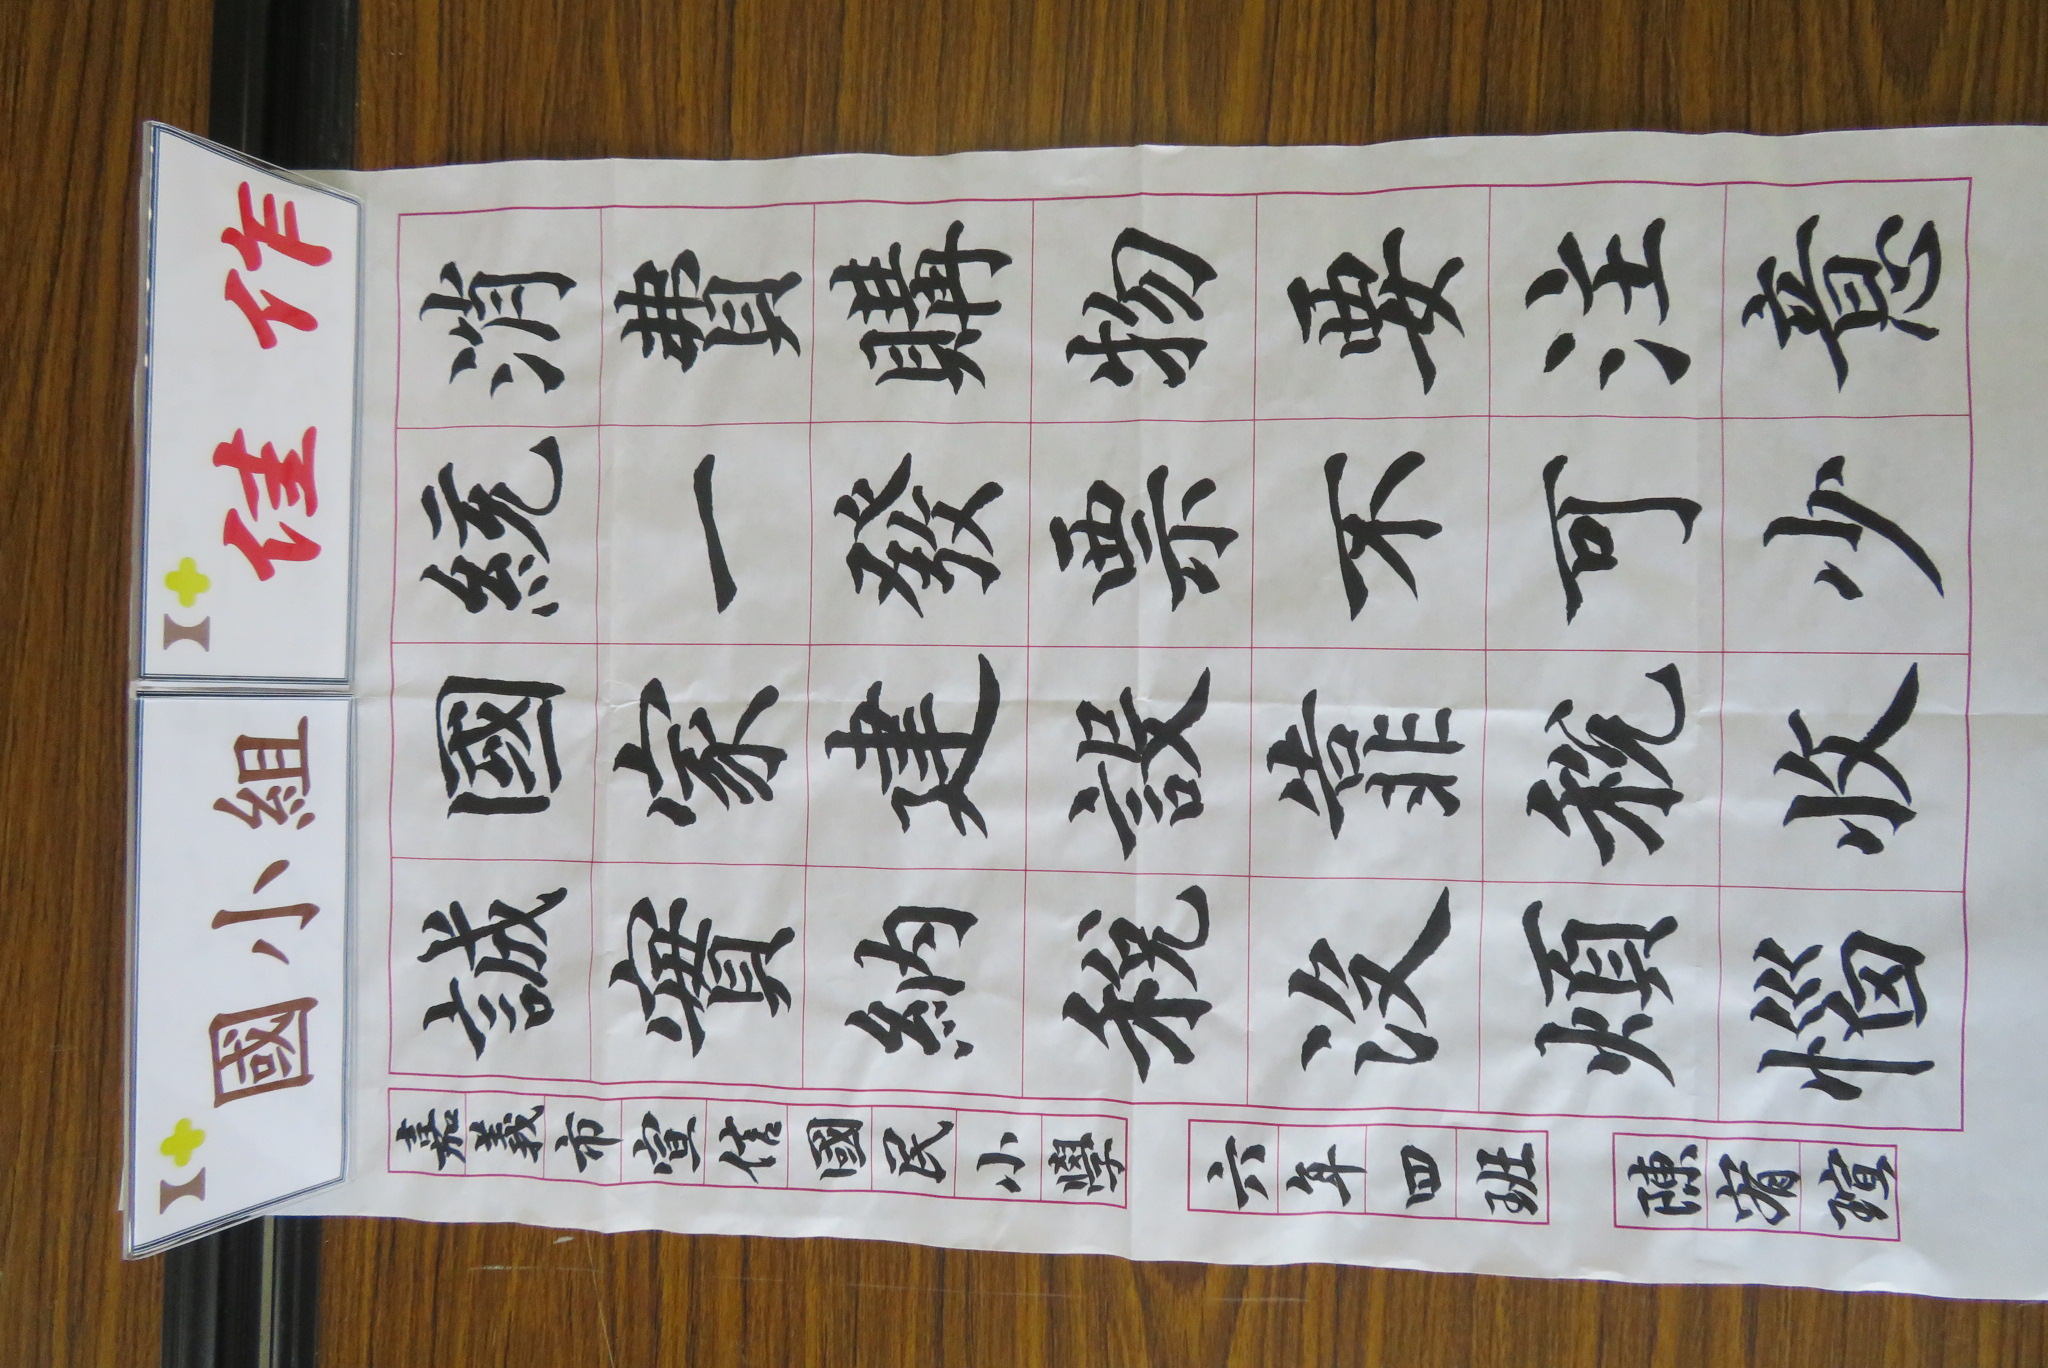 國小組
佳作
消費購物要注意
統一發票不可少
國家建設靠稅收
誠實納稅沒煩惱
嘉義市宣信國民小學
六年四班
陳宥瑄